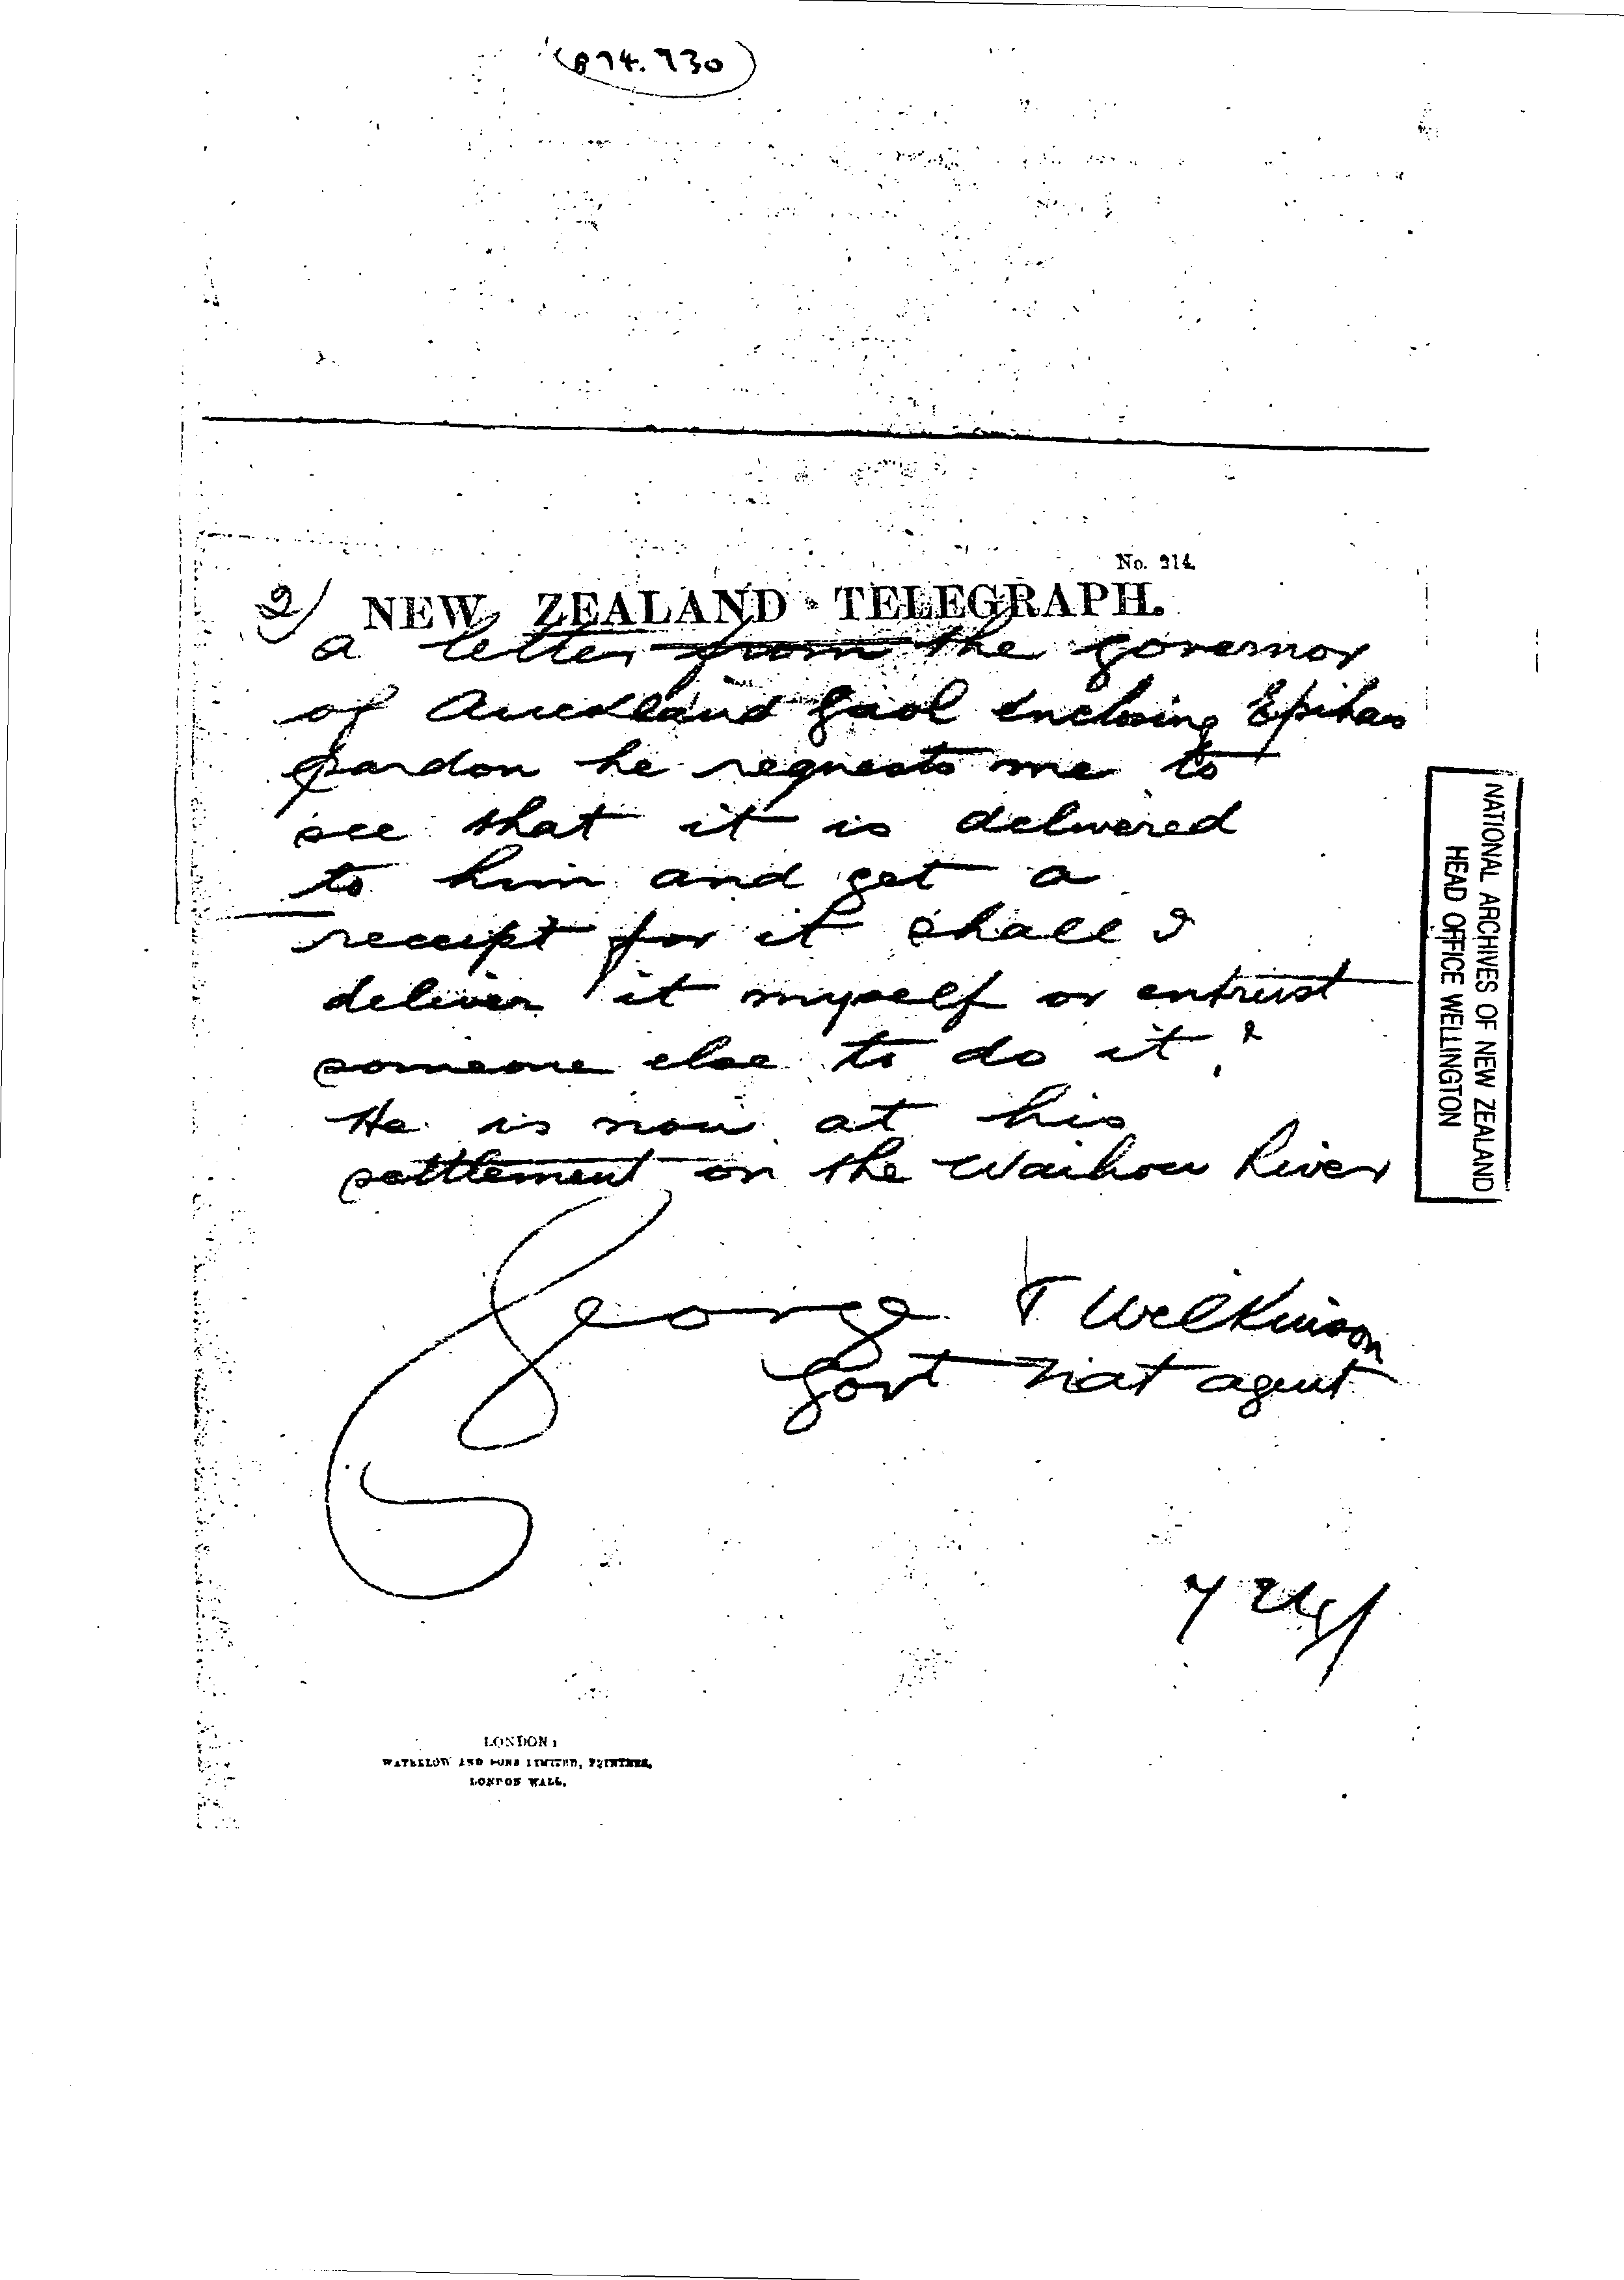 (B74.730)
No. 214.
2/ NEW ZEALAND TELEGRAPH.
a letter from the governor
of Auckland Gaol enclosing Epihas
pardon he requests me to
see that it is delivered
to him and get a
receipt for it shall I
deliver it myself or entrust
someone else to do it?
He is now at his
settlement on the Waihou River
George T Wilkinson
Govt Nat agent
NATIONAL ARCHIVES OF NEW ZEALAND
HEAD OFFICE WELLINGTON
LONDON:
WATERLOW AND SONS LIMITED, PRINTERS,
LONDON WALL.